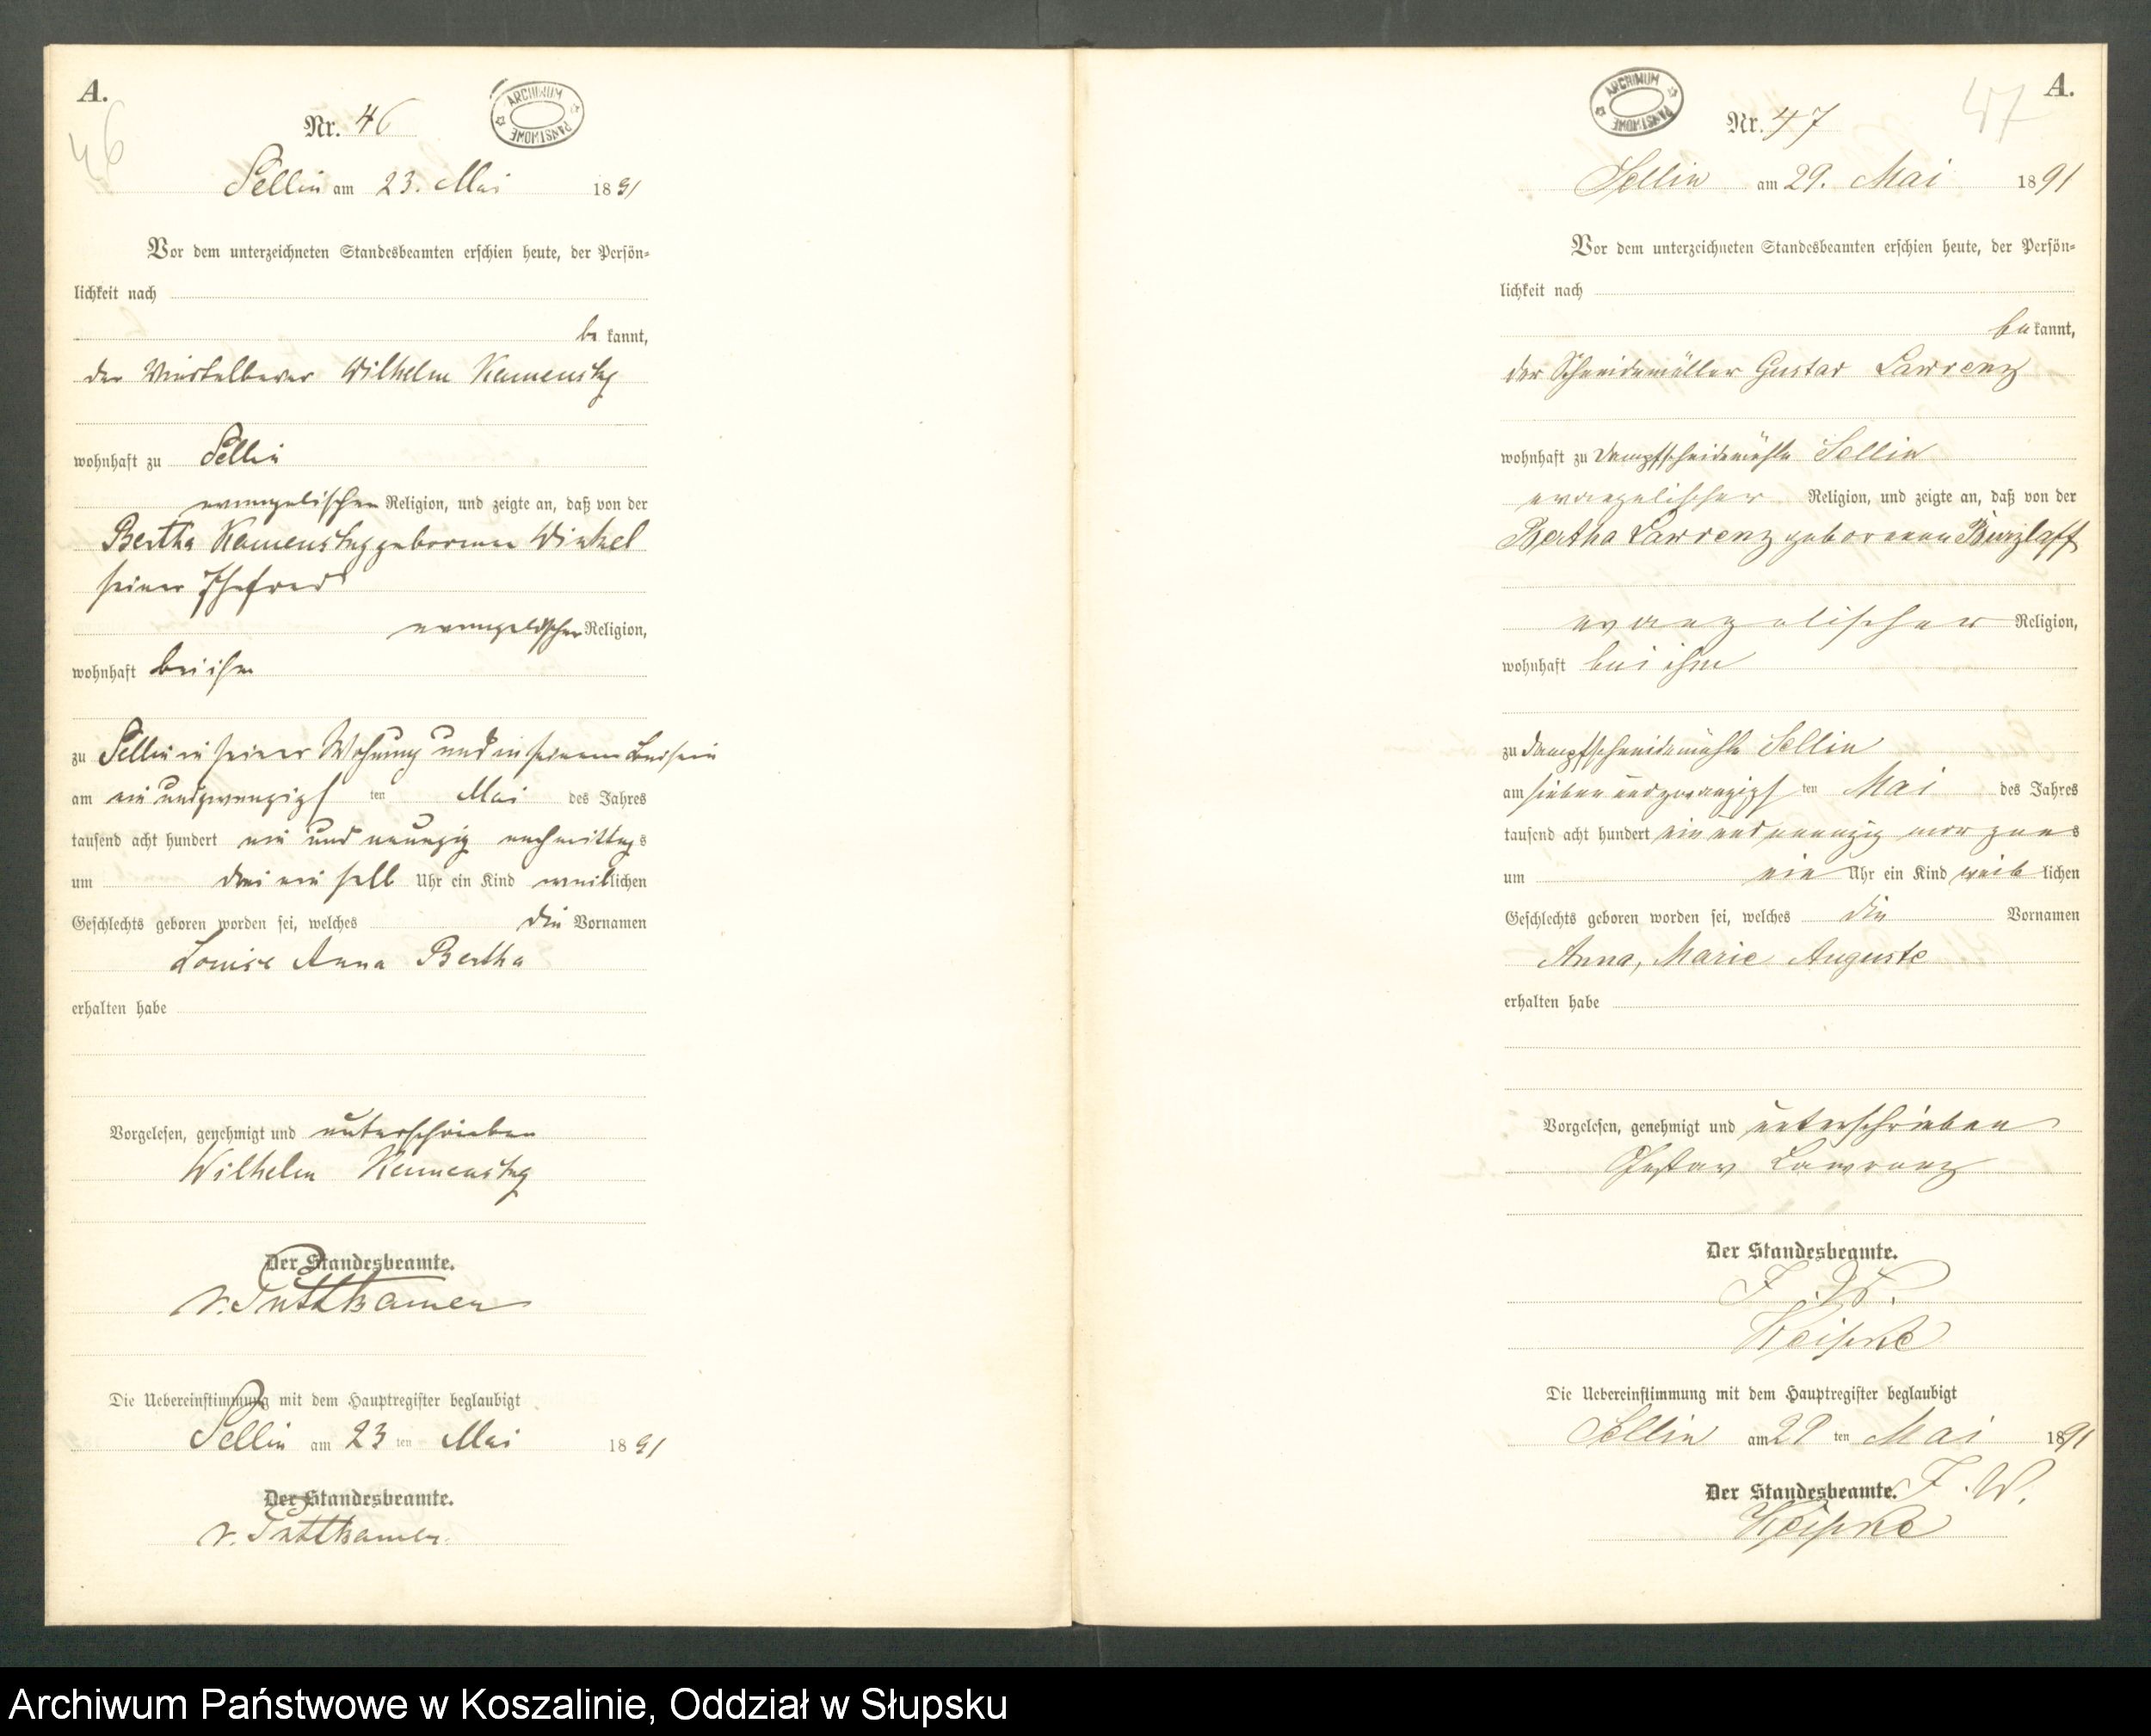 A.
46
Nr. 46
ARCHIWUM PAŃSTWOWE
Sellin am 23. Mai 1891
Vor dem unterzeichneten Standesbeamten erschien heute, der Persön-
lichkeit nach
be kannt,
der Wilhelm Kamensky
wohnhaft zu Sellin
evangelischer Religion, und zeigte an, daß von der
Bertha Kamensky geborene Winkel
seiner Ehefrau
evangelischer Religion,
wohnhaft bei ihm
zu Sellin in seiner Wohnung und in seinem Beisein
am ein undzwanzigst ten Mai des Jahres
tausend acht hundert ein und neunzig nachmittags
um drei ein halb Uhr ein Kind weiblichen
Geschlechts geboren worden sei, welches die Vornamen
Louise Anna Bertha
erhalten habe
Vorgelesen, genehmigt und unterschrieben
Wilhelm Kamensky
Der Standesbeamte.
v. Puttkamer
Die Uebereinstimmung mit dem Hauptregister beglaubigt
Sellin am 23 ten Mai 1891
Der Standesbeamte.
v. Puttkamer.
A.
47
ARCHIWUM PAŃSTWOWE
Nr. 47
Sellin am 29. Mai 1891
Vor dem unterzeichneten Standesbeamten erschien heute, der Persön-
lichkeit nach
be kannt,
der Schneidemüller Gustav Lawrenz
wohnhaft zu Dampfschneidemühle Sellin
evangelischer Religion, und zeigte an, daß von der
Bertha Lawrenz geborenen Burzlaff
evangelischer Religion,
wohnhaft bei ihm
zu Dampfschneidemühle Sellin
am sieben und zwanzigst ten Mai des Jahres
tausend acht hundert ein und neunzig morgens
um ein Uhr ein Kind weib lichen
Geschlechts geboren worden sei, welches die Vornamen
Anna, Marie Auguste
erhalten habe
Vorgelesen, genehmigt und unterschrieben
Gustav Lawrenz
Der Standesbeamte.
Die Uebereinstimmung mit dem Hauptregister beglaubigt
Sellin am 29 ten Mai 1891
Der Standesbeamte.
Archiwum Państwowe w Koszalinie, Oddział w Słupsku